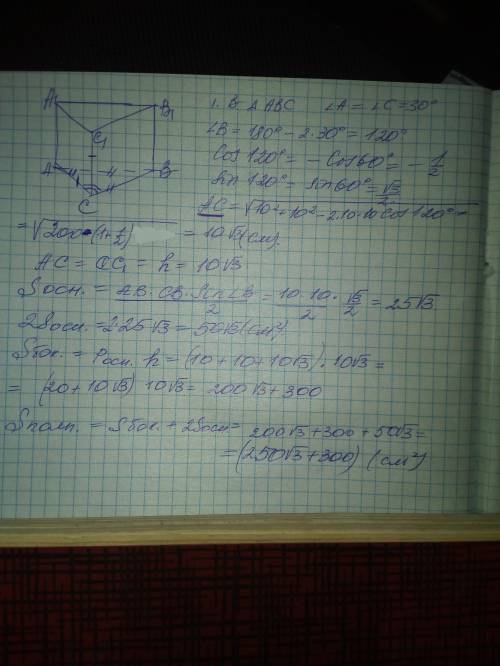 A₁ B₁ C₁ A B C 4 4
1. В △ ABC ∠A = ∠C = 30°
∠B = 180° - 2·30° = 120°
Cos 120° = - Cos 60° = - 1/2
Sin 120° = sin 60° = √3/2
AC = √10² + 10² - 2·10·10 cos 120° =
= √200·(1+1/2) = 10√3 (см).
AC = CC₁ = h = 10√3
Sосн. = AB·CB·Sin∠B/2 = 10·10/2 · √3/2 = 25√3.
2Sосн. = 2·25√3 = 50√3 (см²)
Sбок. = Pосн. h = (10 + 10 + 10√3)·10√3 =
= (20 + 10√3) 10√3 = 200√3 + 300
Sполн. = Sбок. + 2Sосн = 200√3 + 300 + 50√3 =
= (250√3 + 300) (см²)